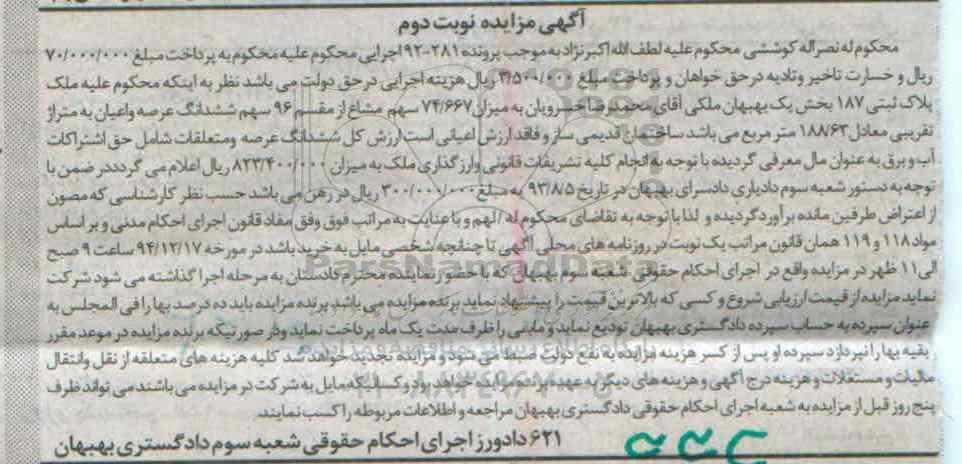 آگهی مزایده نوبت دوم
محکوم له نصراله کوششی محکوم علیه لطف الله اکبرنژاد به موجب پرونده ۲۸۱-۹۲ اجرایی محکوم علیه محکوم به پرداخت مبلغ ۷۰/۰۰۰/۰۰۰
ریال و خسارت تاخیر وتادیه درحق خواهان و پرداخت مبلغ ۳/۵۰۰/۰۰۰ ریال هزینه اجرایی درحق دولت می باشد نظر به اینکه محکوم علیه ملک
پلاک ثبتی ۱۸۷ بخش یک بهبهان ملکی آقای محمدرضا خسرویان به میزان ۷۴/۶۶۷ سهم مشاع از مقسم ۹۶ سهم ششدانگ عرصه واعیان به متراژ
تقریبی معادل ۱۸۸/۶۳ متر مربع می باشد ساختمان قدیمی ساز و فاقد ارزش اعیانی است ارزش کل ششدانگ عرصه ومتعلقات شامل حق اشتراکات
آب و برق به عنوان مال معرفی گردیده با توجه به انجام کلیه تشریفات قانونی وارزگذاری ملک به میزان ۸۲۳/۴۰۰/۰۰۰ ریال اعلام می گردددر ضمن با
توجه به دستور شعبه سوم دادیاری دادسرای بهبهان در تاریخ ۹۳/۸/۵ به مبلغ ۳۰۰/۰۰۰/۰۰۰ ریال در رهن می باشد حسب نظر کارشناسی که مصون
از اعتراض طرفین مانده برآوردگردیده و لذا باتوجه به تقاضای محکوم له / لهم و با عنایت به مراتب فوق وفق مفاد قانون اجرای احکام مدنی و بر اساس
مواد ۱۱۸ و ۱۱۹ همان قانون مراتب یک نوبت در روزنامه های محلی آگهی تا چنانچه شخصی مایل به خرید باشد در مورخه ۹۴/۱۲/۱۷ ساعت ۹ صبح
الی ۱۱ ظهر در مزایده واقع در اجرای احکام حقوقی شعبه سوم بهبهان که با حضور نماینده محترم دادستان به مرحله اجرا گذاشته می شود شرکت
نماید مزایده از قیمت ارزیابی شروع و کسی که بالاترین قیمت را پیشنهاد نماید برنده مزایده می باشد برنده مزایده باید ده درصد بها را فی المجلس به
عنوان سپرده به حساب سپرده دادگستری بهبهان تودیع نماید و مابقی را ظرف مدت یک ماه پرداخت نماید ودر صورتیکه برنده مزایده در موعد مقرر
بقیه بها را نپردازد سپرده او پس از کسر هزینه مزایده به نفع دولت ضبط می شود و مزایده تجدید خواهد شد کلیه هزینه های متعلقه از نقل وانتقال
مالیات و مستغلات و هزینه درج آگهی و هزینه های دیگر به عهده برنده مزایده خواهد بود و کسانیکه مایل به شرکت در مزایده می باشند می تواند ظرف
پنج روز قبل از مزایده به شعبه اجرای احکام حقوقی دادگستری بهبهان مراجعه و اطلاعات مربوطه را کسب نمایند.
۶۲۱ دادورز اجرای احکام حقوقی شعبه سوم دادگستری بهبهان